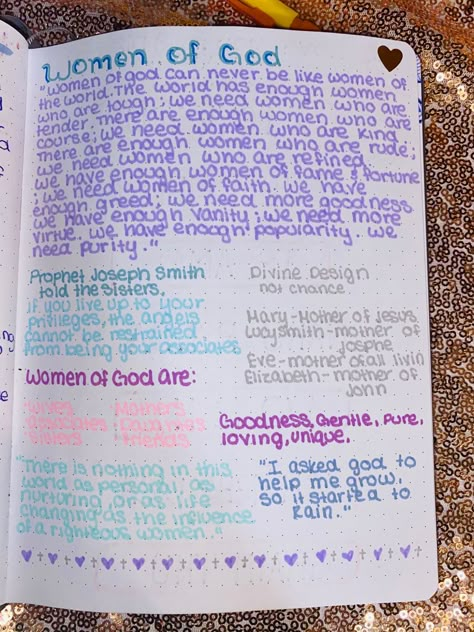 Women of God
"Women of god can never be like women of
the world. The world has enough women
who are tough; we need women who are
tender. There are enough women who are
course; we need women who are kind.
There are enough women who are rude;
we need women who are refined.
We have enough women of fame & fortune
; we need women of faith. We have
enough greed; we need more goodness.
We have enough vanity; we need more
virtue. We have enough popularity. We
need purity."
Prophet Joseph Smith
told the sisters,
if you live up to your
privileges, the angels
cannot be restrained
from being your associates
Divine Design
not chance
Mary-Mother of Jesus
Waysmith-mother of
Josphe
Eve-mother of all livin
Elizabeth-mother of
John
Women of God are:
Wives Mothers
associates
Sisters friends
Goodness, Gentle, Pure,
loving, unique.
"There is nothing in this
world as personal, as
nurturing or as life
changing as the influence
of a righteous women."
"I asked god to
help me grow,
so it started to
rain."